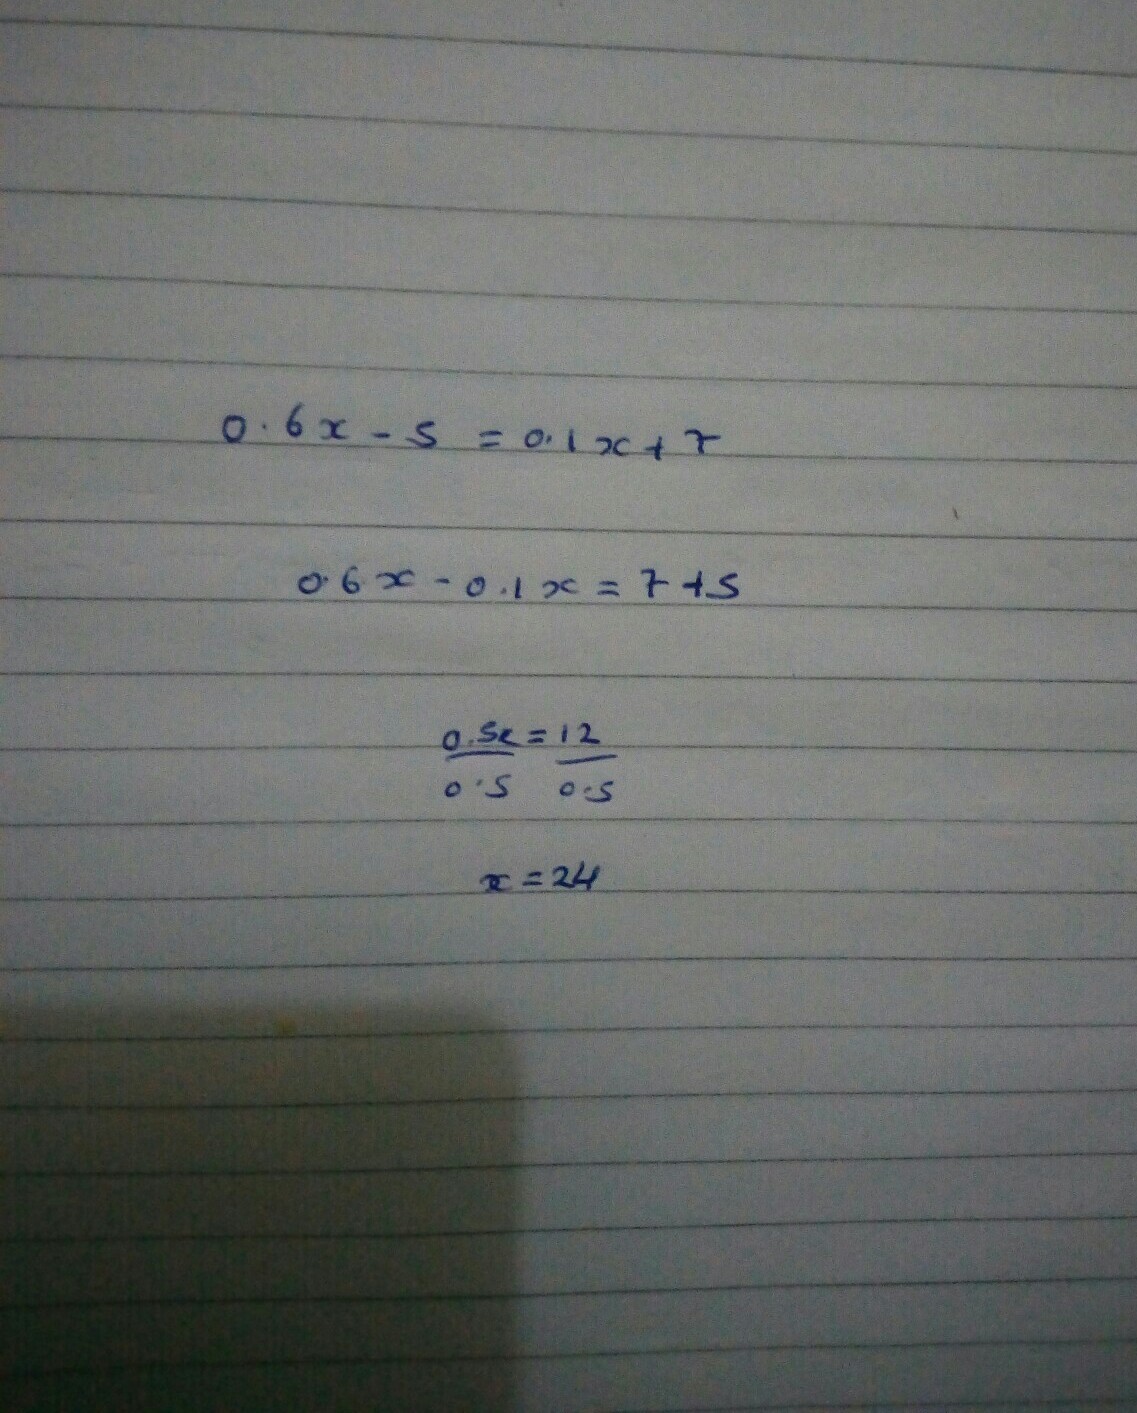 0.6x - 5 = 0.1x + 7
0.6x - 0.1x = 7 + 5
0.5x = 12
0.5 0.5
x = 24